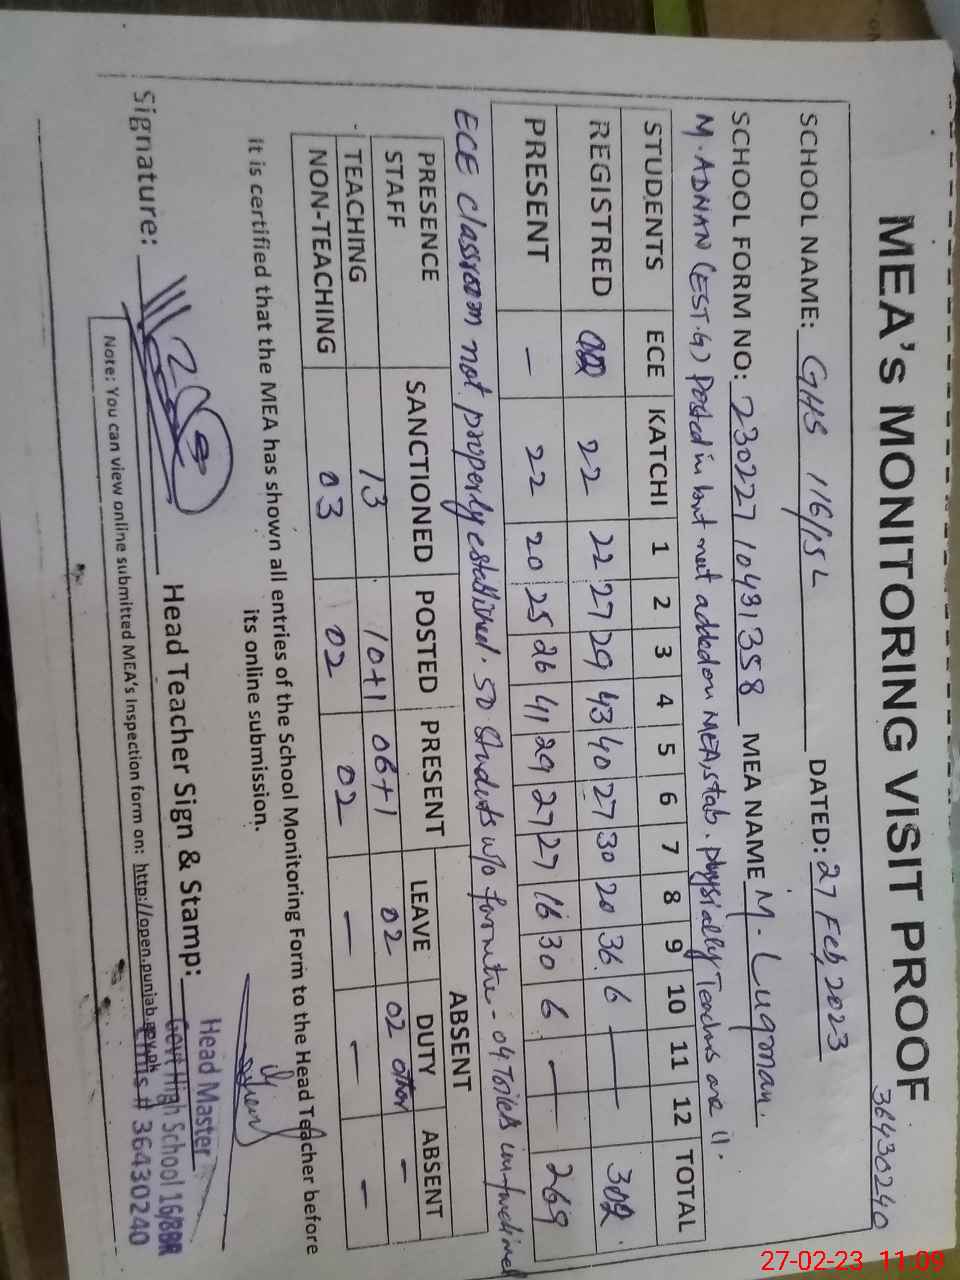 MEA's MONITORING VISIT PROOF
36430240
SCHOOL NAME: GHS 116/15L DATED: 27 Feb, 2023
SCHOOL FORM NO: 230227 10491358 MEA NAME M. Luqman.
M. ADNAN (EST.G) Posted in but not added on MEA,s tab. physially Teachers are 11.
STUDENTS ECE KATCHI 1 2 3 4 5 6 7 8 9 10 11 12 TOTAL
REGISTRED 22 22 27 29 43 40 27 30 20 36 6 — — 302
PRESENT — 22 20 25 26 41 29 27 27 16 30 6 — — 269
ECE classroom not properly established. 50 students w/o furnitre - 04 Toilets un-functional
PRESENCE STAFF SANCTIONED POSTED PRESENT ABSENT
LEAVE DUTY ABSENT
TEACHING 13 10+1 06+1 02 02 other —
NON-TEACHING 03 02 02 — — —
It is certified that the MEA has shown all entries of the School Monitoring Form to the Head Teacher before
its online submission.
Signature: Head Teacher Sign & Stamp:
Head Master
Govt High School 16/88R
Emis # 36430240
Note: You can view online submitted MEA's Inspection form on: http://open.punjab.gov.pk
27-02-23 11:09